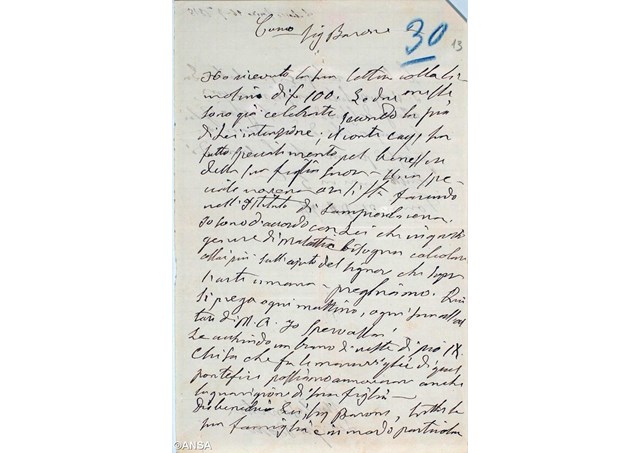 Caro Sig Barone
30
13
Ho ricevuto la sua lettera colla li
mosina di fr 100. Le due messe
sono già celebrate secondo la pia
di Lei intenzione, il conte Cays ha
fatto specialmente pel benessere
della sua figlia Una spe
ciale novena ora si sta facendo
nell'Istituto di Sampierdarena.
Io sono d'accordo con Lei che in questo
genere di malattie bisogna calcolare
assai più sull'ajuto del Signore che sopra
l'arte umana - preghiamo. Qui
si prega ogni mattino, ogni sera all'al
tare di M. A. Io
Le un brano di veste di Pio IX.
Chi sa che fra le maraviglie di quel
pontefice possiamo annoverare anche
la guarigione di sua figlia -
Dio benedica Lei, Sig Barone, tutta la
sua famiglia e in modo particolar
©ANSA